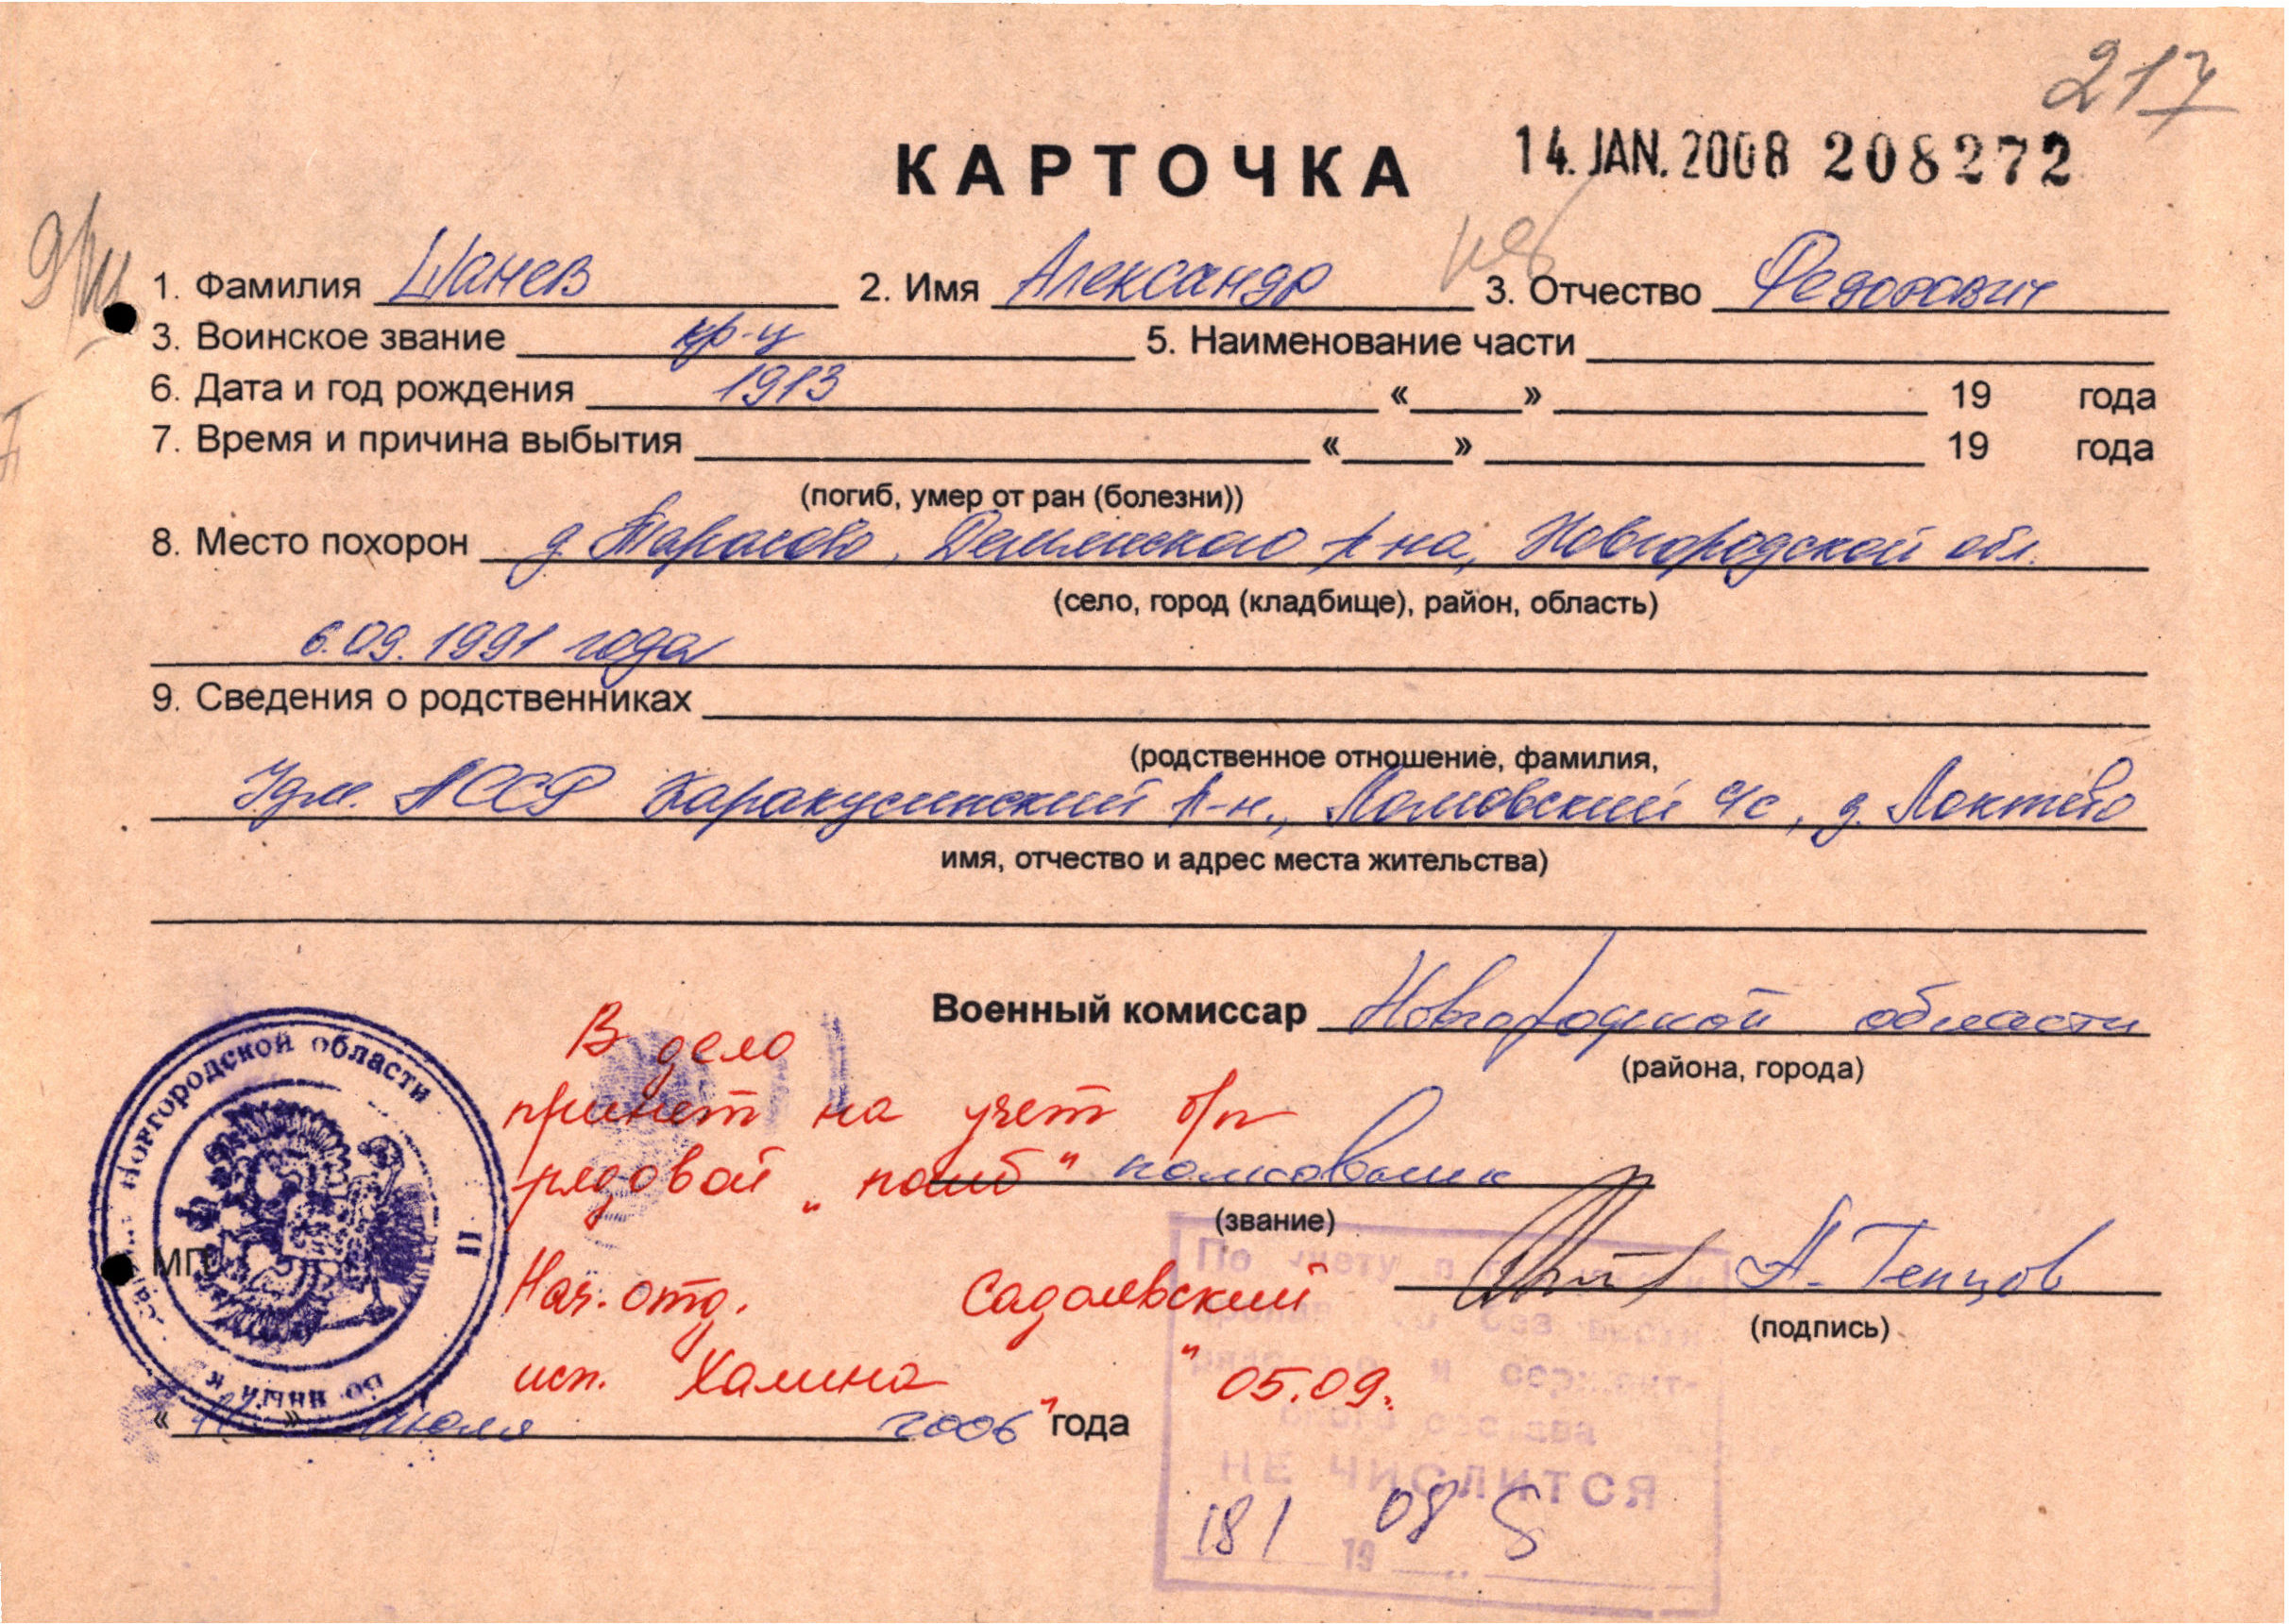 217
КАРТОЧКА 14. JAN. 2008 208272
1. Фамилия Шанев 2. Имя Александр 3. Отчество Федорович
3. Воинское звание кр-ц 5. Наименование части
6. Дата и год рождения 1913 « » 19 года
7. Время и причина выбытия « » 19 года
(погиб, умер от ран (болезни))
8. Место похорон д. Тарасово, Демянского р-на, Новгородской обл.
(село, город (кладбище), район, область)
6.09.1991 года
9. Сведения о родственниках
(родственное отношение, фамилия,
Удм. АССР Каракулинский р-н., Ломовский с/с, д. Локтево
имя, отчество и адрес места жительства)
Военный комиссар Новгородской области
(района, города)
В дело
принят на учет б/п
рядовой „погиб" полковник
(звание)
Нач. отд. Садалевский
А. Гепцов
(подпись)
исп. Халина " 05.09.
« 11 » июля 2006 года
Новгородской области
МП
По учету
без вести
и сержант-
ского состава
НЕ ЧИСЛИТСЯ
181 08
19